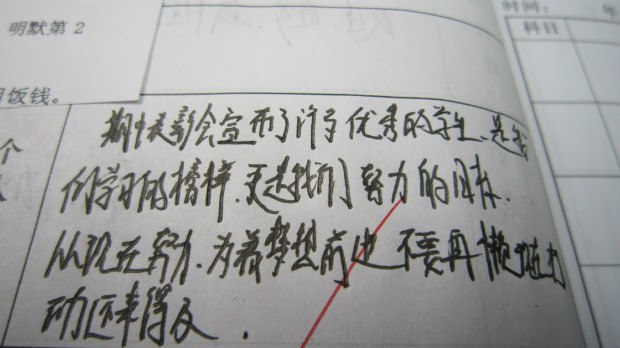 明默第 2
饭钱。
时间: 年
科目
个
期中表彰会宣布了许多优秀的学生、是我
们学习的榜样、更是我们努力的目标.
从现在努力.为着梦想前进 不要再懒惰行
动还来得及.